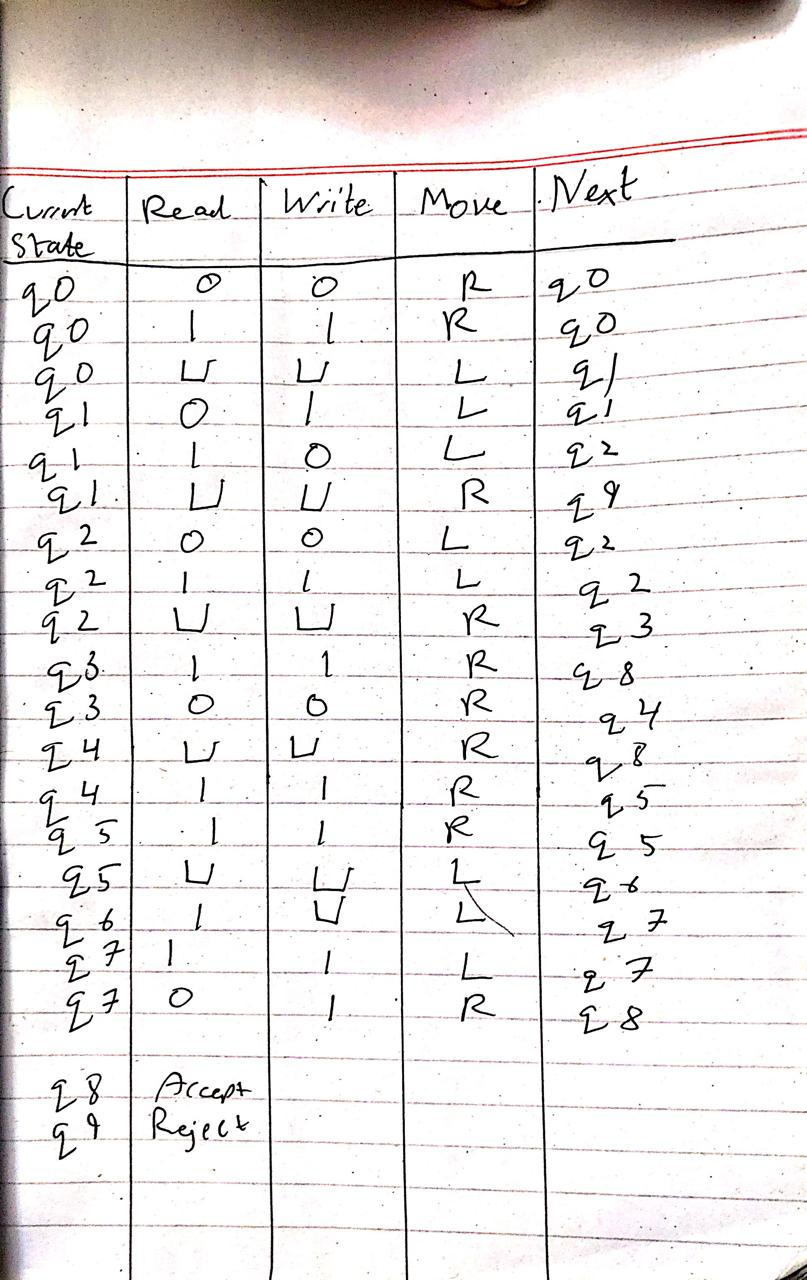 Current State Read Write Move Next
q0 0 0 R q0
q0 1 1 R q0
q0 ⊔ ⊔ L q1
q1 0 1 L q1
q1 1 0 L q2
q1 ⊔ ⊔ R q9
q2 0 0 L q2
q2 1 1 L q2
q2 ⊔ ⊔ R q3
q3 1 1 R q8
q3 0 0 R q4
q4 ⊔ ⊔ R q8
q4 1 1 R q5
q5 1 1 R q5
q5 ⊔ ⊔ L q6
q6 1 ⊔ L q7
q7 1 1 L q7
q7 0 1 R q8
q8 Accept
q9 Reject